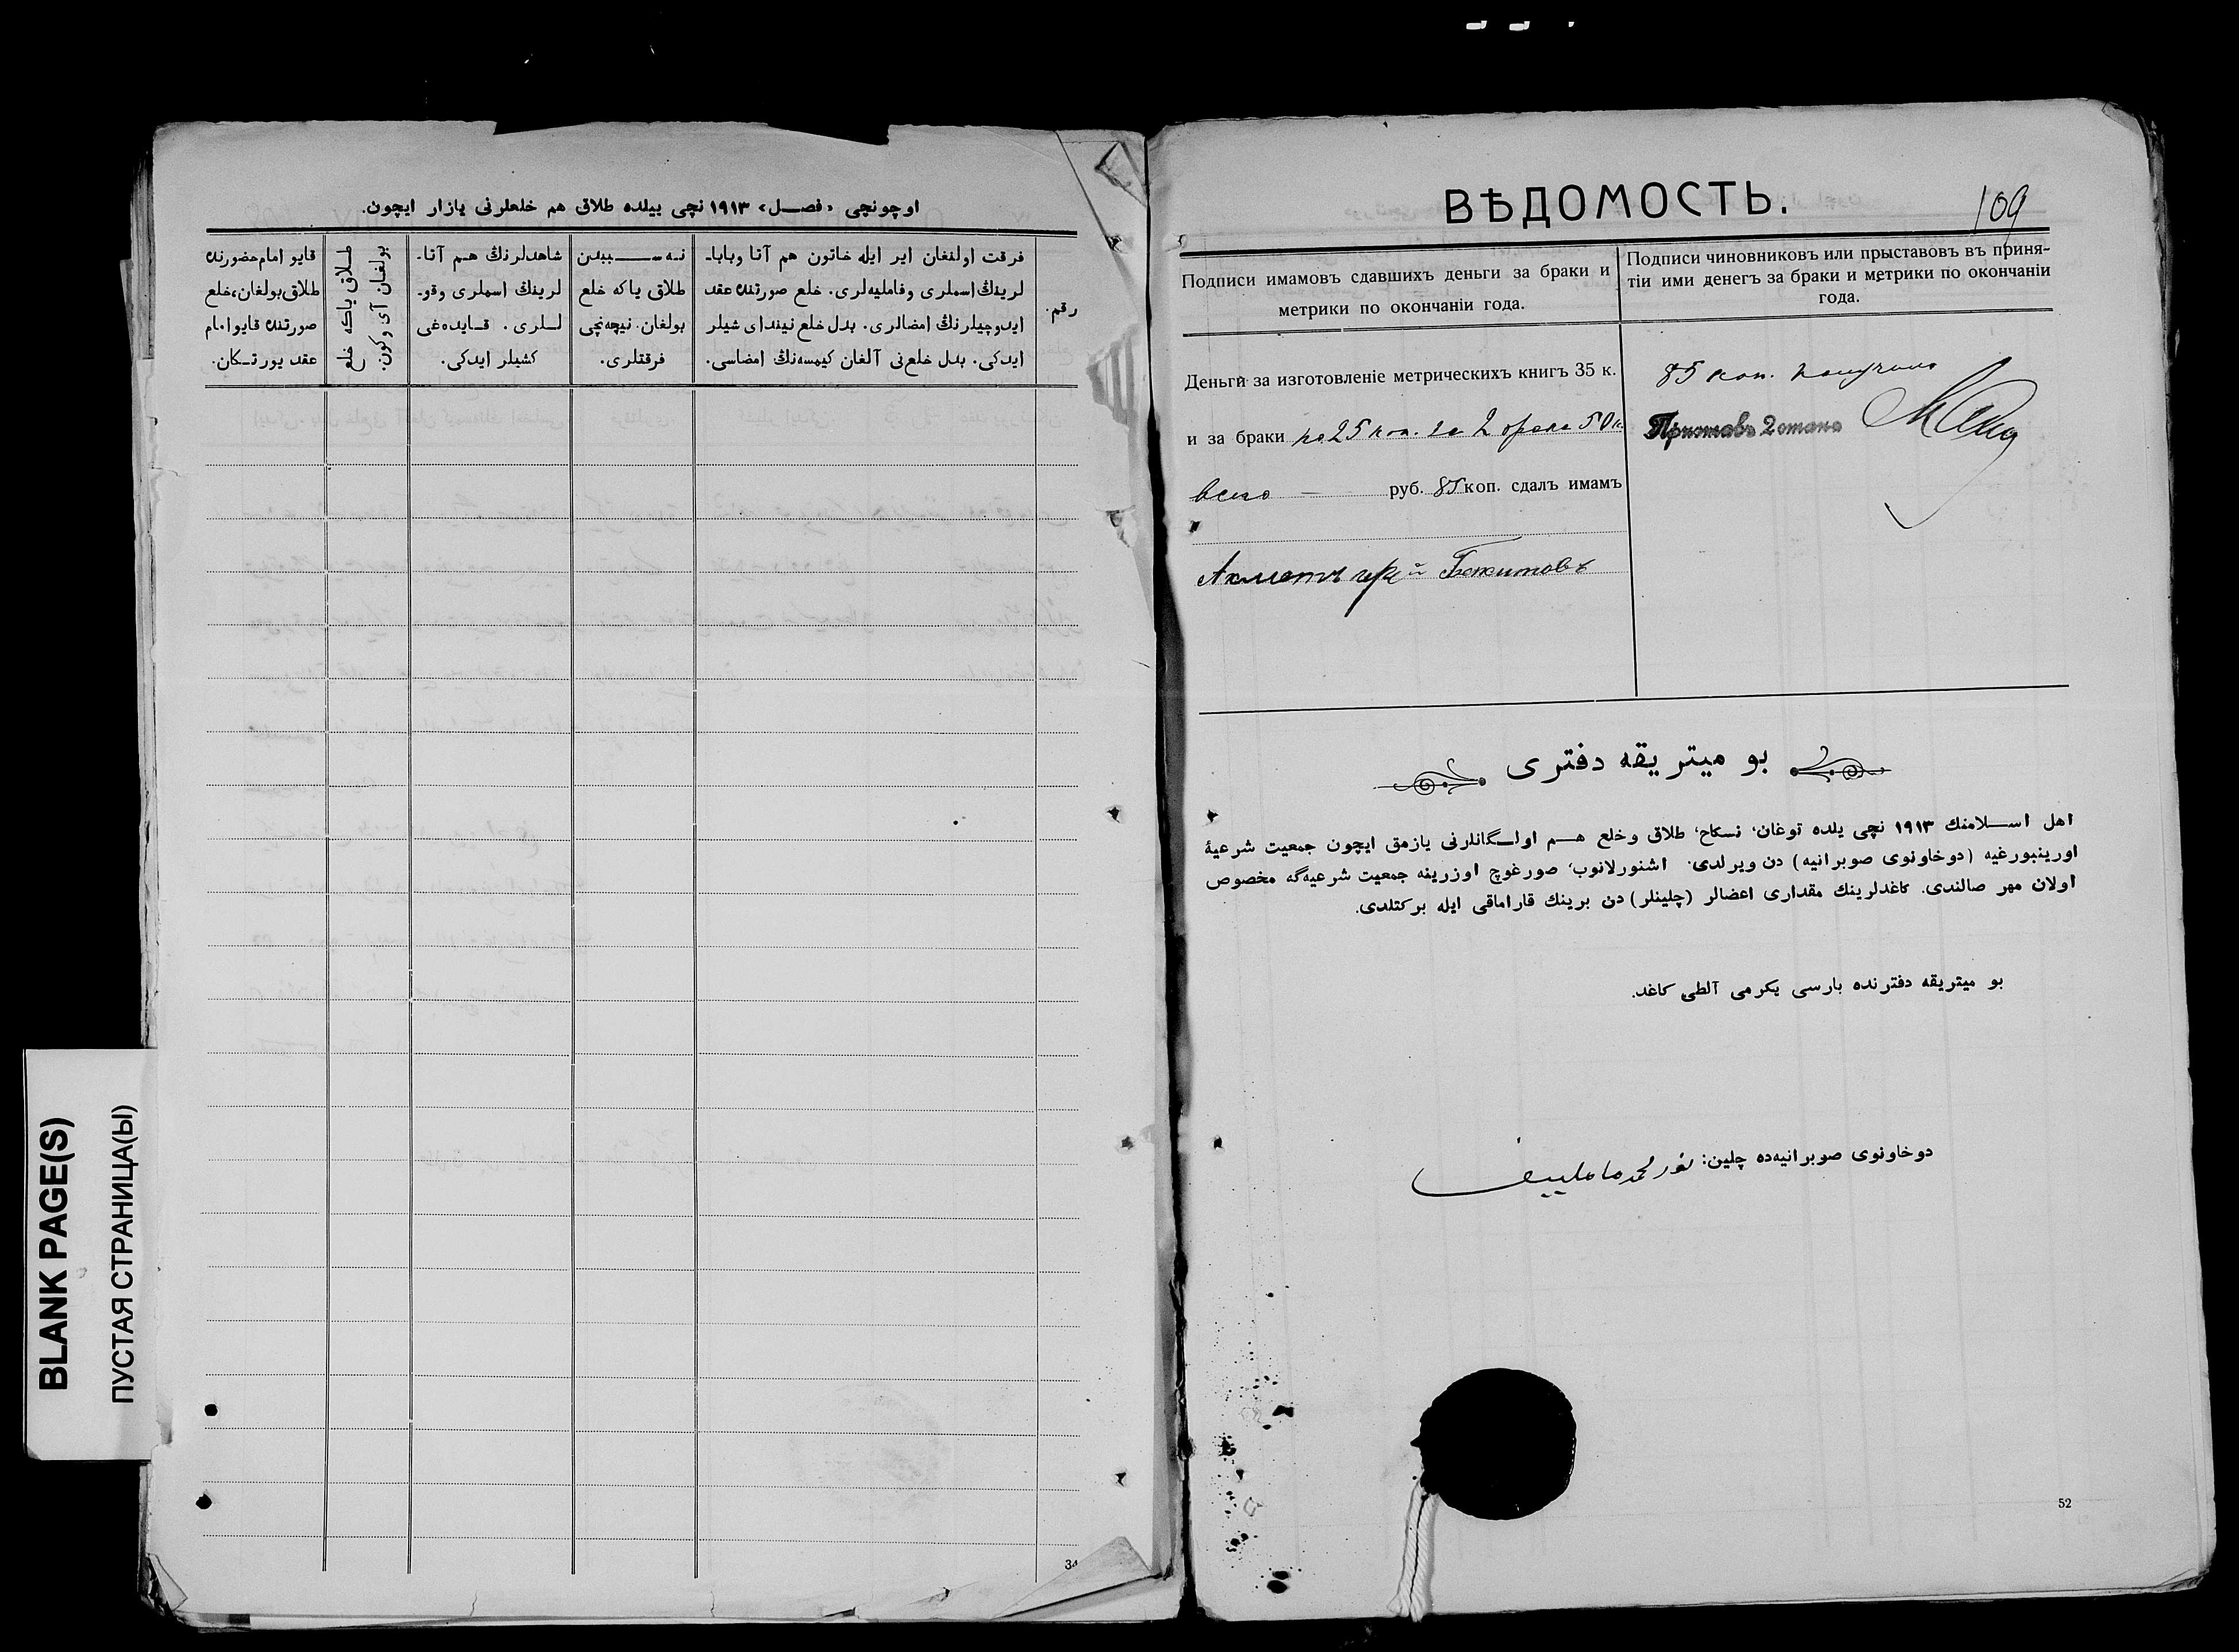 BLANK PAGE(S)
ПУСТАЯ СТРАНИЦА(Ы)
اوچونچی «فصل» ۱۹۱۳ نچی ییلده طلاق هم خلعلرنی یازار ایچون.
رقم.
فرقت اولنغان ایر ایله خاتون هم آتا وبابا-
لرینڭ اسملری وفامليه‌لری. خلع صورتنده عقد
ایدوچیلرنڭ امضالری. بدل خلع نیندای شیلر
ایدکی. بدل خلع‌نی آلغان کیمسه‌نڭ امضاسی.
نه سببدن
طلاق یاکه خلع
بولغان. نیچه‌نچی
فرقتلری.
شاهدلرنڭ هم آتا-
لرینڭ اسملری وقو-
لری. قایده‌غی
کشیلر ایدکی.
طلاق یاکه خلع
بولغان آی وکون.
قایو امام حضورنده
طلاق بولغان، خلع
صورتنده قایو امام
عقد یورتکان.
34
ВѢДОМОСТЬ.
109
Подписи имамовъ сдавшихъ деньги за браки и
метрики по окончаніи года.
Подписи чиновниковъ или прыставовъ въ приня-
тіи ими денегъ за браки и метрики по окончаніи
года.
Деньги за изготовленіе метрическихъ книгъ 35 к.
и за браки по 25 коп. за 2 брака 50 к.
всего — руб. 85 коп. сдалъ имамъ
Ахметъ
85 коп. получилъ
Приставъ 2 стана
بو میتریقه دفتری
اهل اسلامنك ۱۹۱۳ نچی یلده توغان، نكاح، طلاق وخلع هم اولگانلرنی یازمق ایچون جمعیت شرعیۀ
اورینبورغیه (دوخاونوی صوبرانیه) دن ویرلدی. اشنورلانوب، صورغوچ اوزرینه جمعیت شرعیه‌گه مخصوص
اولان مهر صالندی. كاغدلرینك مقداری اعضالر (چلینلر) دن برینك قاراماقی ایله بركتلدی.
بو میتریقه دفترنده بارسی یكرمی آلطی كاغد.
دوخاونوی صوبرانیه‌ده چلین: نورمحمد مامليیف
52